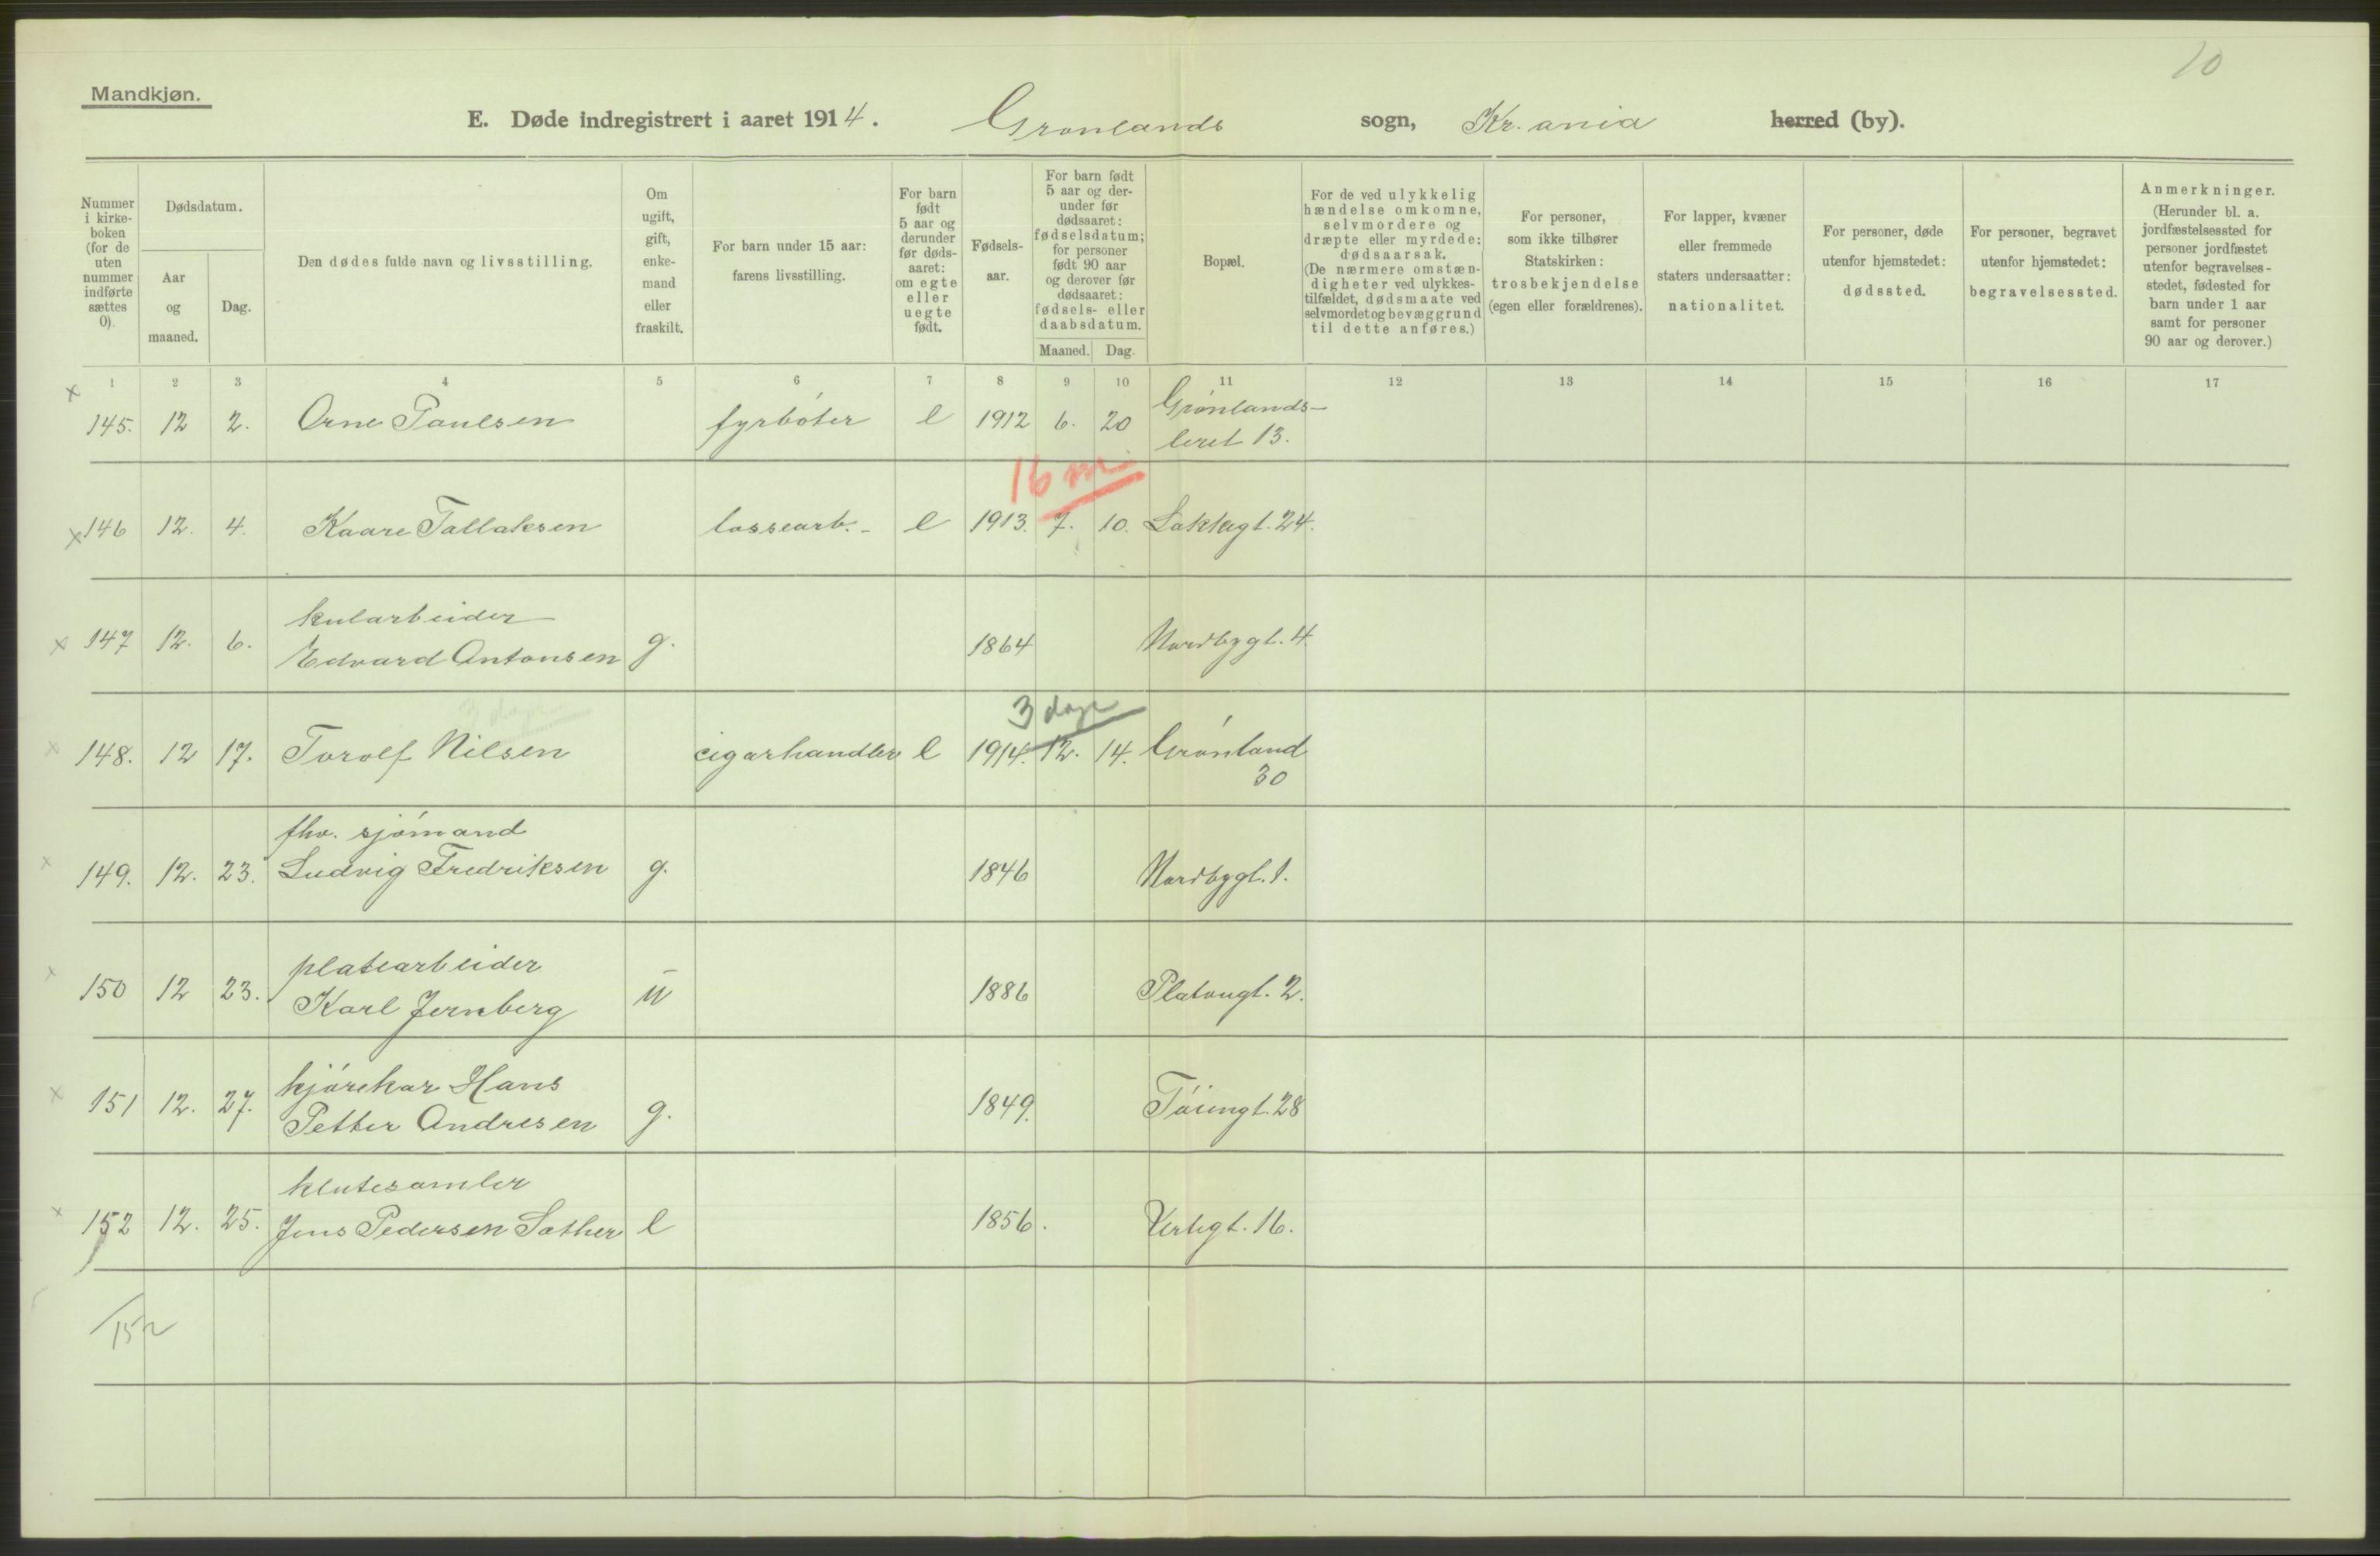 10
Mandkjøn.
E. Døde indregistrert i aaret 1914. Grønlands sogn, Kr.ania herred (by).
Nummer i kirke-boken (for de uten nummer indførte sættes 0).
Dødsdatum.
Aar og maaned.
Dag.
Den dødes fulde navn og livsstilling.
Om ugift, gift, enke-mand eller fraskilt.
For barn under 15 aar: farens livsstilling.
For barn født 5 aar og derunder før døds-aaret: om egte eller uegte født.
Fødsels-aar.
For barn født 5 aar og der-under før dødsaaret: fødselsdatum; for personer født 90 aar og derover før dødsaaret: fødsels- eller daabsdatum.
Maaned. Dag.
Bopæl.
For de ved ulykkelig hændelse omkomne, selvmordere og dræpte eller myrdede: dødsaarsak. (De nærmere omstæn-digheter ved ulykkes-tilfældet, dødsmaate ved selvmordet og bevæggrund til dette anføres.)
For personer, som ikke tilhører Statskirken: trosbekjendelse (egen eller forældrenes).
For lapper, kvæner eller fremmede staters undersaatter: nationalitet.
For personer, døde utenfor hjemstedet: dødssted.
For personer, begravet utenfor hjemstedet: begravelsessted.
Anmerkninger. (Herunder bl. a. jordfæstelsessted for personer jordfæstet utenfor begravelses-stedet, fødested for barn under 1 aar samt for personer 90 aar og derover.)
1 2 3 4 5 6 7 8 9 10 11 12 13 14 15 16 17
x 145. 12 2. Arne Paulsen fyrbøter e 1912 6. 20 Grønlands-
leret 13.
16 m
x 146 12. 4. Kaare Tallaksen lossearb. - e 1913. 7. 10. Lakkegt. 24.
kularbeider
x 147 12. 6. Edvard Antonsen g. 1864 Nordbygt. 4.
3 dage
3 dage
x 148. 12 17. Torolf Nilsen cigarhandler e 1914. 12. 14. Grønland
30
fhv. sjømand
x 149. 12. 23. Ludvig Fredriksen g. 1846 Nordbygt. 1.
platearbeider
x 150 12 23. Karl Jernberg u 1886 Platougt. 2.
kjørekar Hans
x 151 12. 27. Petter Andresen g. 1849. Tøiengt. 28
klutesamler
x 152 12. 25. Jens Pedersen Sæther e 1856. Urtegt. 16.
152